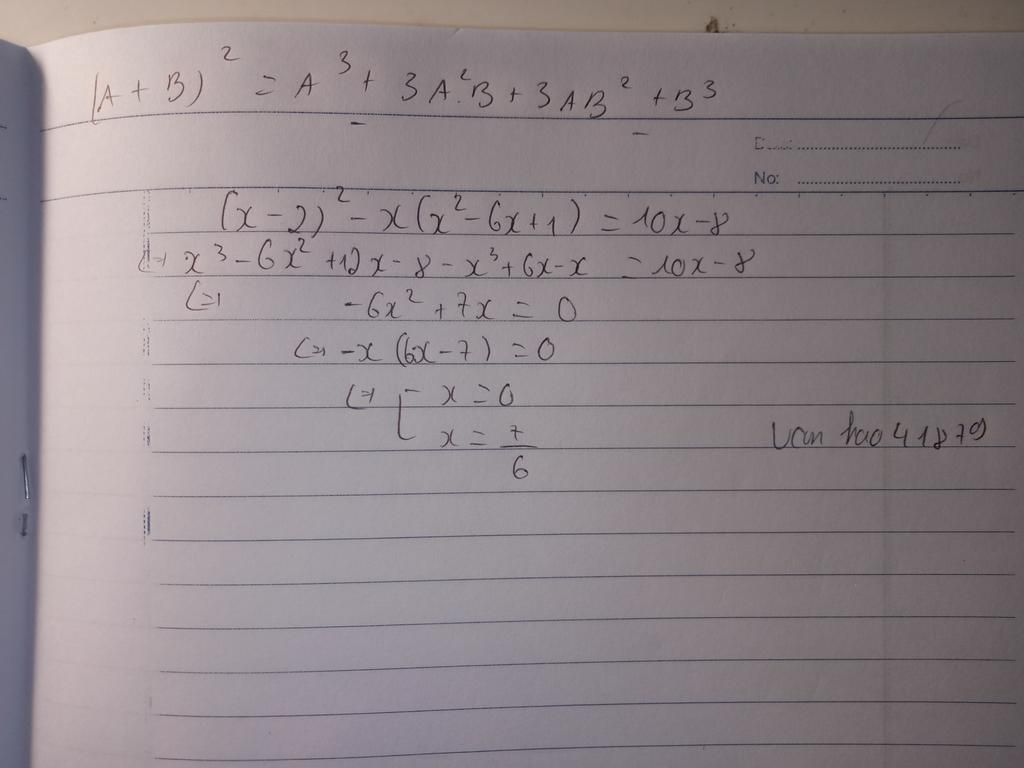 (A + B)² = A³ + 3A²B + 3AB² + B³
No:
(x - 2)² - x(x² - 6x + 1) = 10x - 8
(=) x³ - 6x² + 12x - 8 - x³ + 6x - x = 10x - 8
(=) -6x² + 7x = 0
(=) -x (6x - 7) = 0
(=) [ x = 0
x = 7/6
van hao 41879